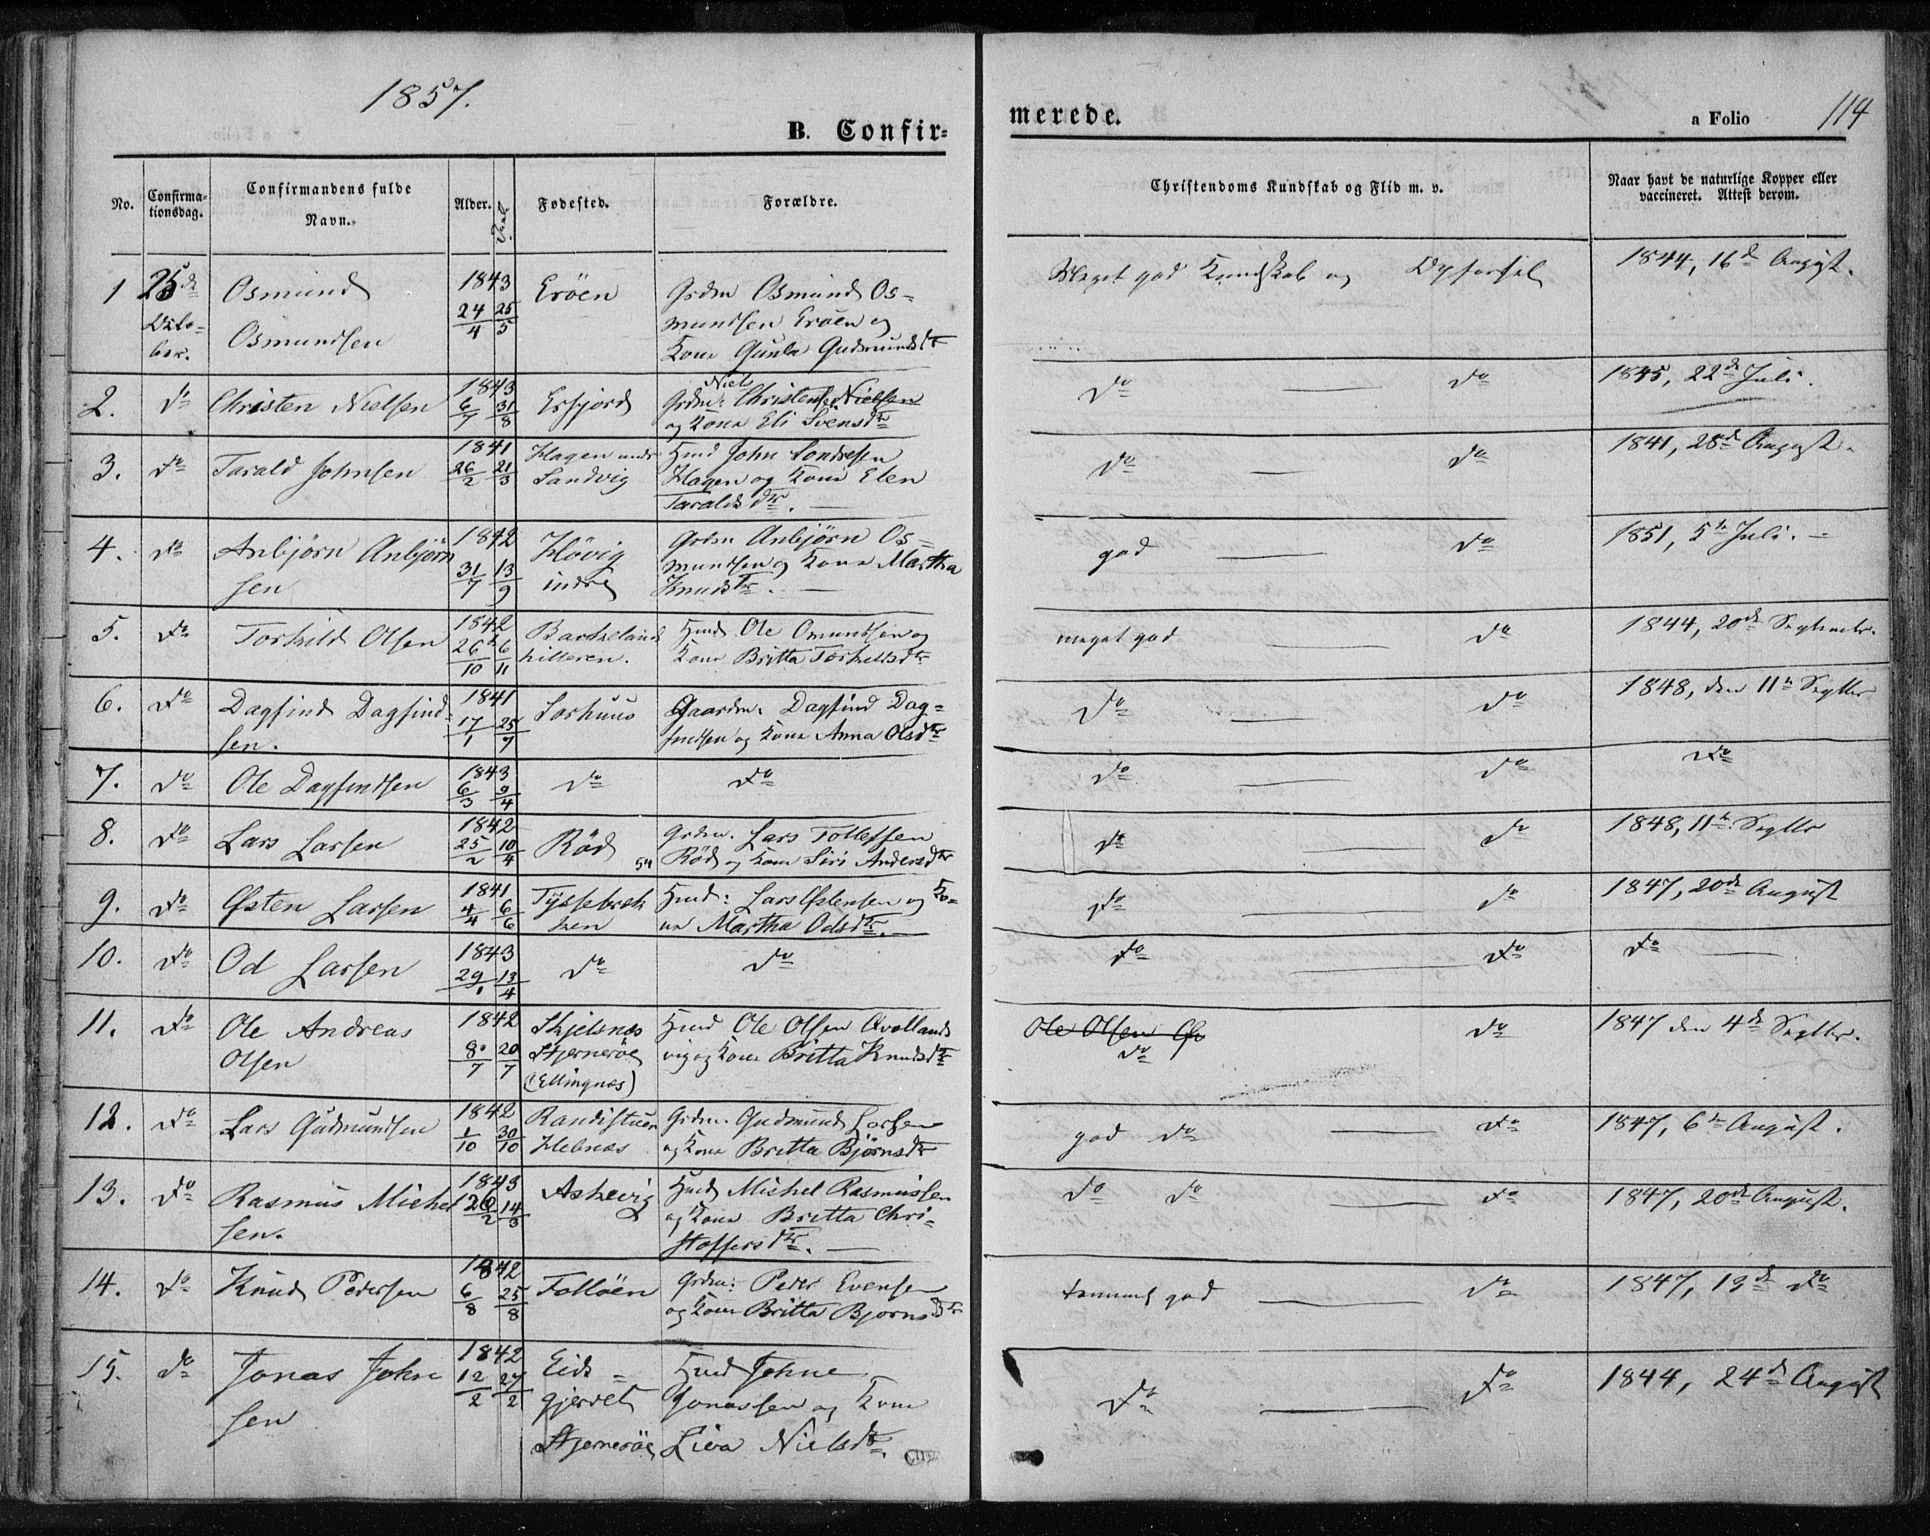 1857.
B. Confir-
merede.
a Folio 114
No. Confirma-tionsdag. Confirmandens fulde Navn. Alder. Daab Fødested. Forældre. Christendoms Kundskab og Flid m. v. Naar havt de naturlige Kopper eller vaccineret. Attest derom.
1 25de Octo-ber. Osmund Osmundsen 1843 24/4 25/5 Erøen Grdm Osmund Os-
mundsen Erøen og
Kone Gunla Gudmundsdtr
Meget god Kundskab og Opførsel 1844, 16de August.
2. do Christen Nielsen 1843 6/7 31/8 Erfjord Grdm: Niel Christensen Nielsen
og Kone Eli Svensdtr
do — do 1845, 22de Juli.
3. do Tarald Johnsen 1841 26/2 21/3 Hagen undr Sandvig Huud John Sondresen
Hagen og Kone Elen
Taraldsdtr. —
do — do 1841, 28de August.
4. do Anbjørn Anbjørn sen 1842 31/7 13/9 Høvig indre Grdm Anbjørn Os-
mundsen og Kone Martha
Knudsdtr. —
god — do 1851, 5te Juli. —
5. do Torkild Olsen 1842 26/10 6/11 Barkeland hilleren. Huud Ole Omundsen og
Kone Britta Torkeldsdtr
meget god — do 1844, 20de Septembr.
6. do Dagfind Dagfind-sen. 1841 17/1 25/7 Sorhuus Gaardm. Dagfind Dag-
findsen og Kone Anna Olsdtr
do — do 1848, den 11te Septbr
7. do Ole Dagfindsen 1843 6/3 9/4 do do
do — do do
8. do Lars Larsen 1842 25/2 10/4 Rød Grdm. Lars Tollefsen
Rød og Kone Siri Andersdtr
do — do 1848, 11te Septbr
9. do Østen Larsen 1841 4/4 6/6 Tyssebrek ken Huud: Lars Østensen og Ko-
ne Martha Odsdtr. —
do — do 1847, 20de August
10. do Od Larsen 1843 29/1 13/4 do do
do — do do —
11. do Ole Andreas Olsen 1842 8/7 20/7 Skjelsnes Stjernerøe (Ellingnæs) Huud Ole Olsen Qvalland
vig og Kone Britta Knudsdtr
Ole Olsen Qv
do do 1847 den 4de Septbr.
12. do Lars Gudmundsen 1842 1/10 30/10 Randistuen Helnæs Grdm. Gudmund Larsen
og Kone Britta Bjørnsdtr
god do — do 1847, 6te August.
13. do Rasmus Michel sen. 1843 12/2 14/3 Askevig Huud Michel Rasmussen
og Kone Britta Chri-
stoffersdtr. —
do do do 1847, 20de August.
14. do Knud Pedersen 1842 6/8 25/8 Folløen Grdm: Peder Evensen
og Kone Britta Bjørnsdtr
temmel god — do 1847, 19de do
15. do Jonas John sen 1842 12/2 27/2 Eids- gjerdet Stjernerøe Huud Johne
Jonassen og Kone
Liva Nielsdtr.
do — do 1844, 24de August